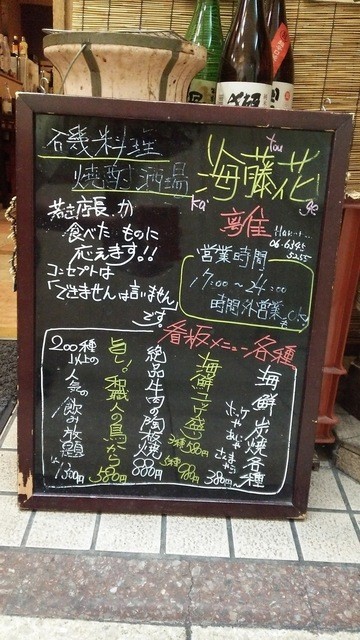 磯料理
焼酎酒場
海藤花
ka
tou
ge
離
06-6345
5255
若き店長が
食べたいものに
応えます!!
コンセプトは
「できませんは言いません」
です。
営業時間
17:00〜24:00
時間外営業もOK
看板メニュー各種
海鮮炭焼各種
380円
海鮮ユッケ盛り
3種580円
5種980円
絶品牛肉の陶板焼
880円
旨し!和職人の鳥から
580円
200種
以上の
人気の飲み放題
1300円